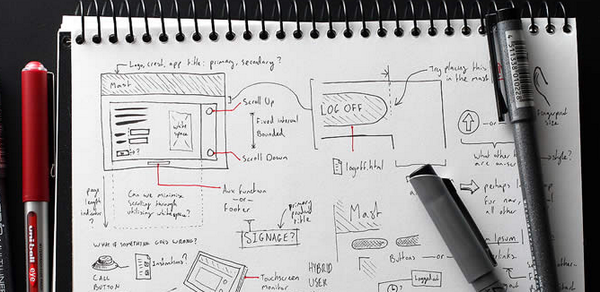 Logo, crest, app title: primary, secondary?
Mast
Scroll Up
white
space
Fixed interval
Bounded
Scroll Down
Aux Function
—or—
Footer
page
length
indicator
?
Can we minimise
scrolling through
utilising whitespace?
LOG OFF
Try placing this
in the mast
logoff.html
Fingerprint
size
—or
What other
are an
style?
perhaps
for nav
all other
primary
product
title
SIGNAGE?
Mast
WHAT IF SOMETHING GOES WRONG?
CALL
BUTTON
Instructions?
Touchscreen
monitor
HYBRID
USER
Buttons —or—
Logged out
Ipsum
links.
uni-ball
eye